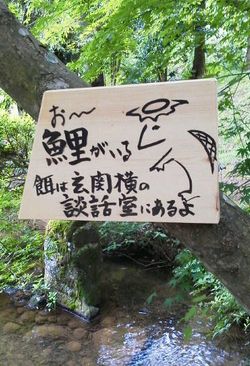 お〜
鯉がいる
餌は玄関横の
談話室にあるよ